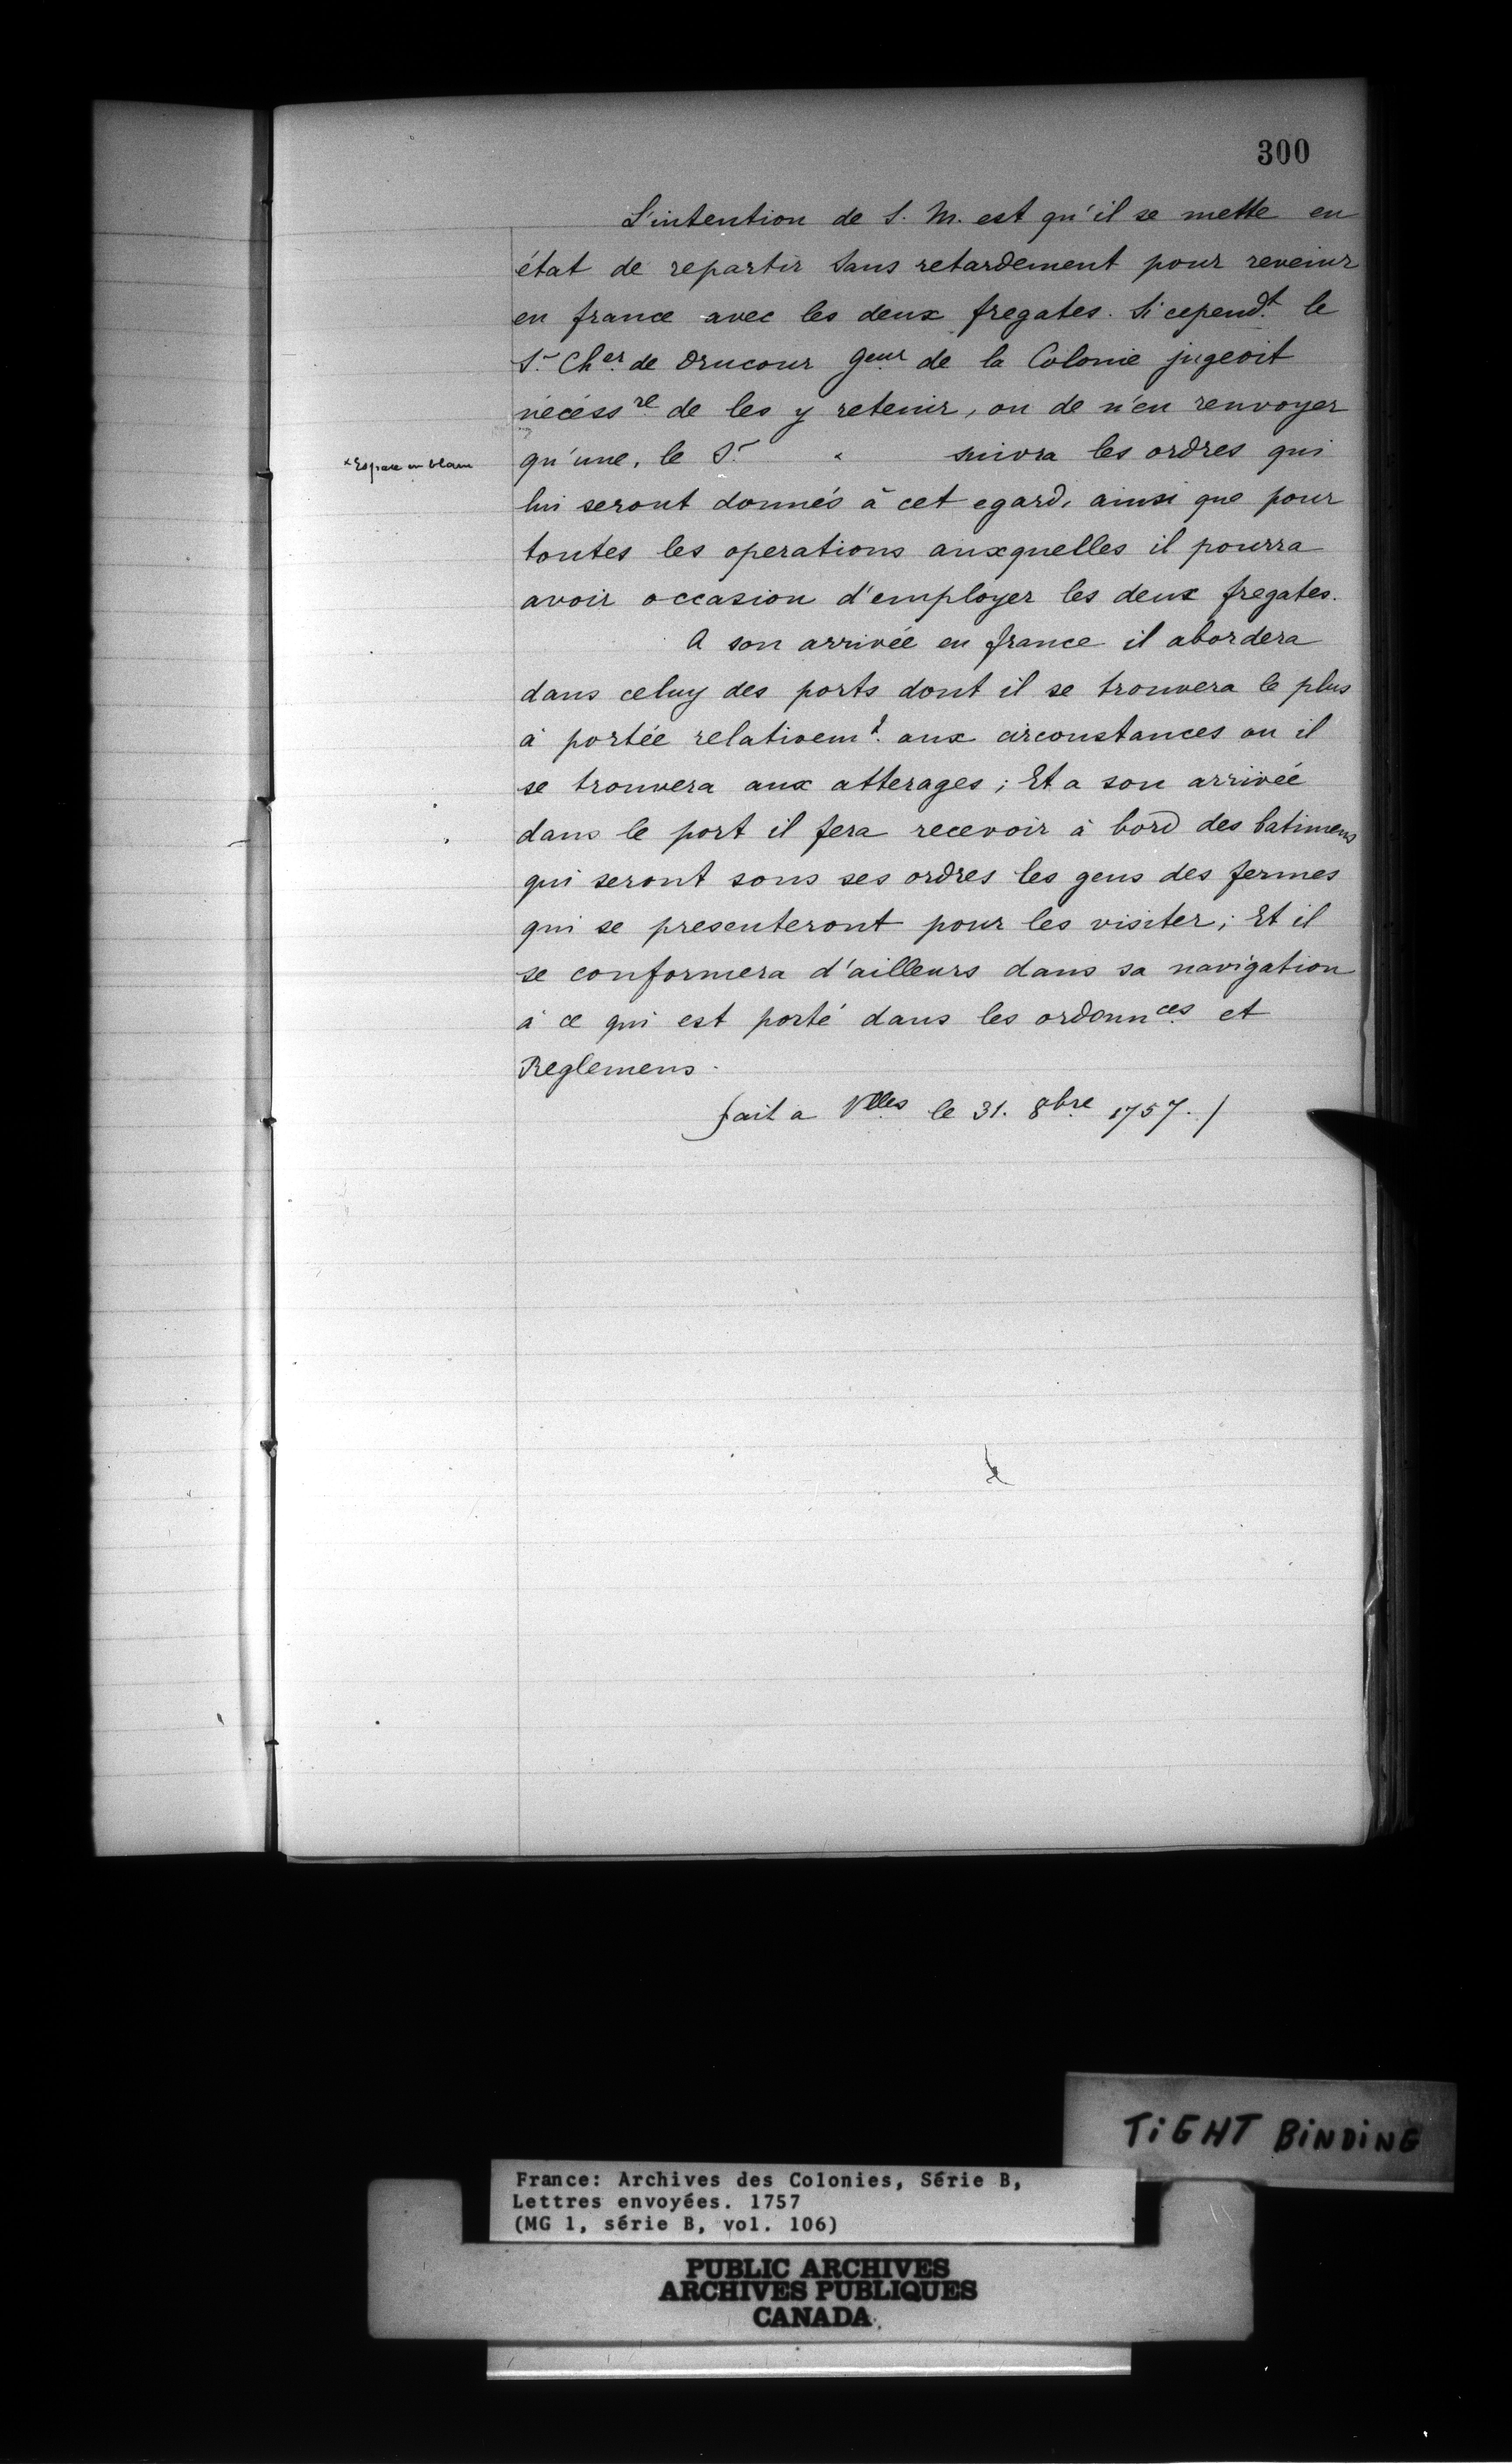 300
L'intention de S. M. est qu'il se mette en
état de repartir sans retardement pour revenir
en france avec les deux fregates. Si cepend.t le
S.r Ch.er de Drucour g.eur de la Colonie jugeoit
nécéss.re de les y retenir, ou de n'en renvoyer
qu'une, le S.r x suivra les ordres qui
x Espace en blanc
lui seront donnés à cet egard, ainsi que pour
toutes les operations auxquelles il pourra
avoir occasion d'employer les deux fregates.
A son arrivée en france il abordera
dans celuy des ports dont il se trouvera le plus
à portée relativem.t aux circonstances ou il
se trouvera aux atterages ; Et a son arrivée
dans le port il fera recevoir à bord des batimens
qui seront sous ses ordres les gens des fermes
qui se presenteront pour les visiter ; Et il
se conformera d'ailleurs dans sa navigation
à ce qui est porté dans les ordonn.ces et
Reglemens.
fait a V.lles le 31. 8bre 1757. /
TIGHT BINDING
France: Archives des Colonies, Série B,
Lettres envoyées. 1757
(MG 1, série B, vol. 106)
PUBLIC ARCHIVES
ARCHIVES PUBLIQUES
CANADA